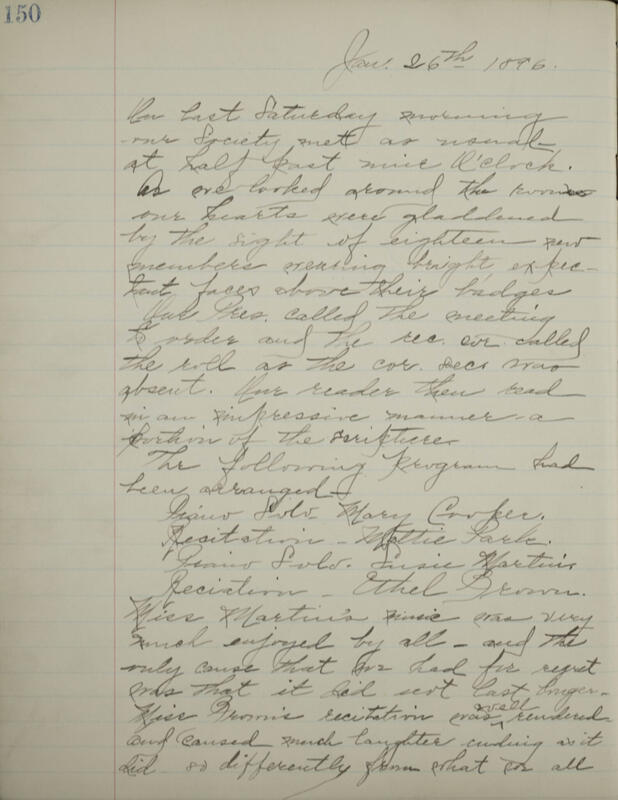 150
Jan. 26th 1896.
On last Saturday morning
our Society met as usual
at half past nine O'clock.
As we looked around the room
our hearts were gladdened
by the sight of eighteen new
members wearing bright, expec-
tant faces above their badges
Our Pres. called the meeting
to order and the rec. sec. called
the roll as the cor. sec. was
absent. Our reader then read
in an impressive manner a
portion of the scripture.
The following program had
been arranged-
Piano Solo- Mary Cooper.
Recitation - Mattie Park.
Piano Solo. Susie Martin.
Reciation - Ethel Brown.
Miss Martin's music was very
much enjoyed by all - and the
only cause that we had for regret
was that it did not last longer-
Miss Brown's recitation was well rendered
and caused much laughter ending as it
did so differently from what we all